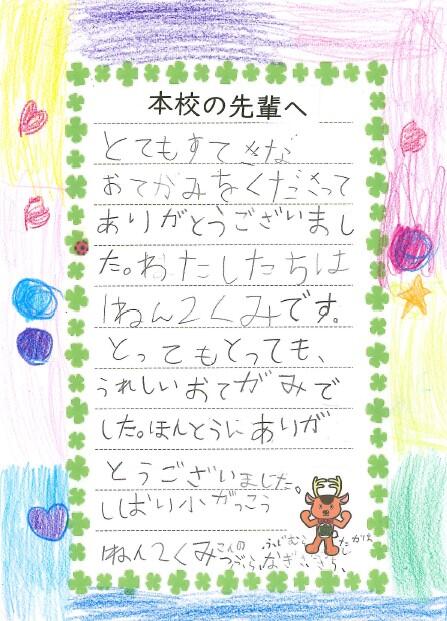 本校の先輩へ
とてもすてきな
おてがみをくださって
ありがとうございまし
た。わたしたちは
1ねん2くみです。
とってもとっても、
うれしいおてがみで
した。ほんとうにありが
とうございました。
しばり小がっこう
1ねん2くみ